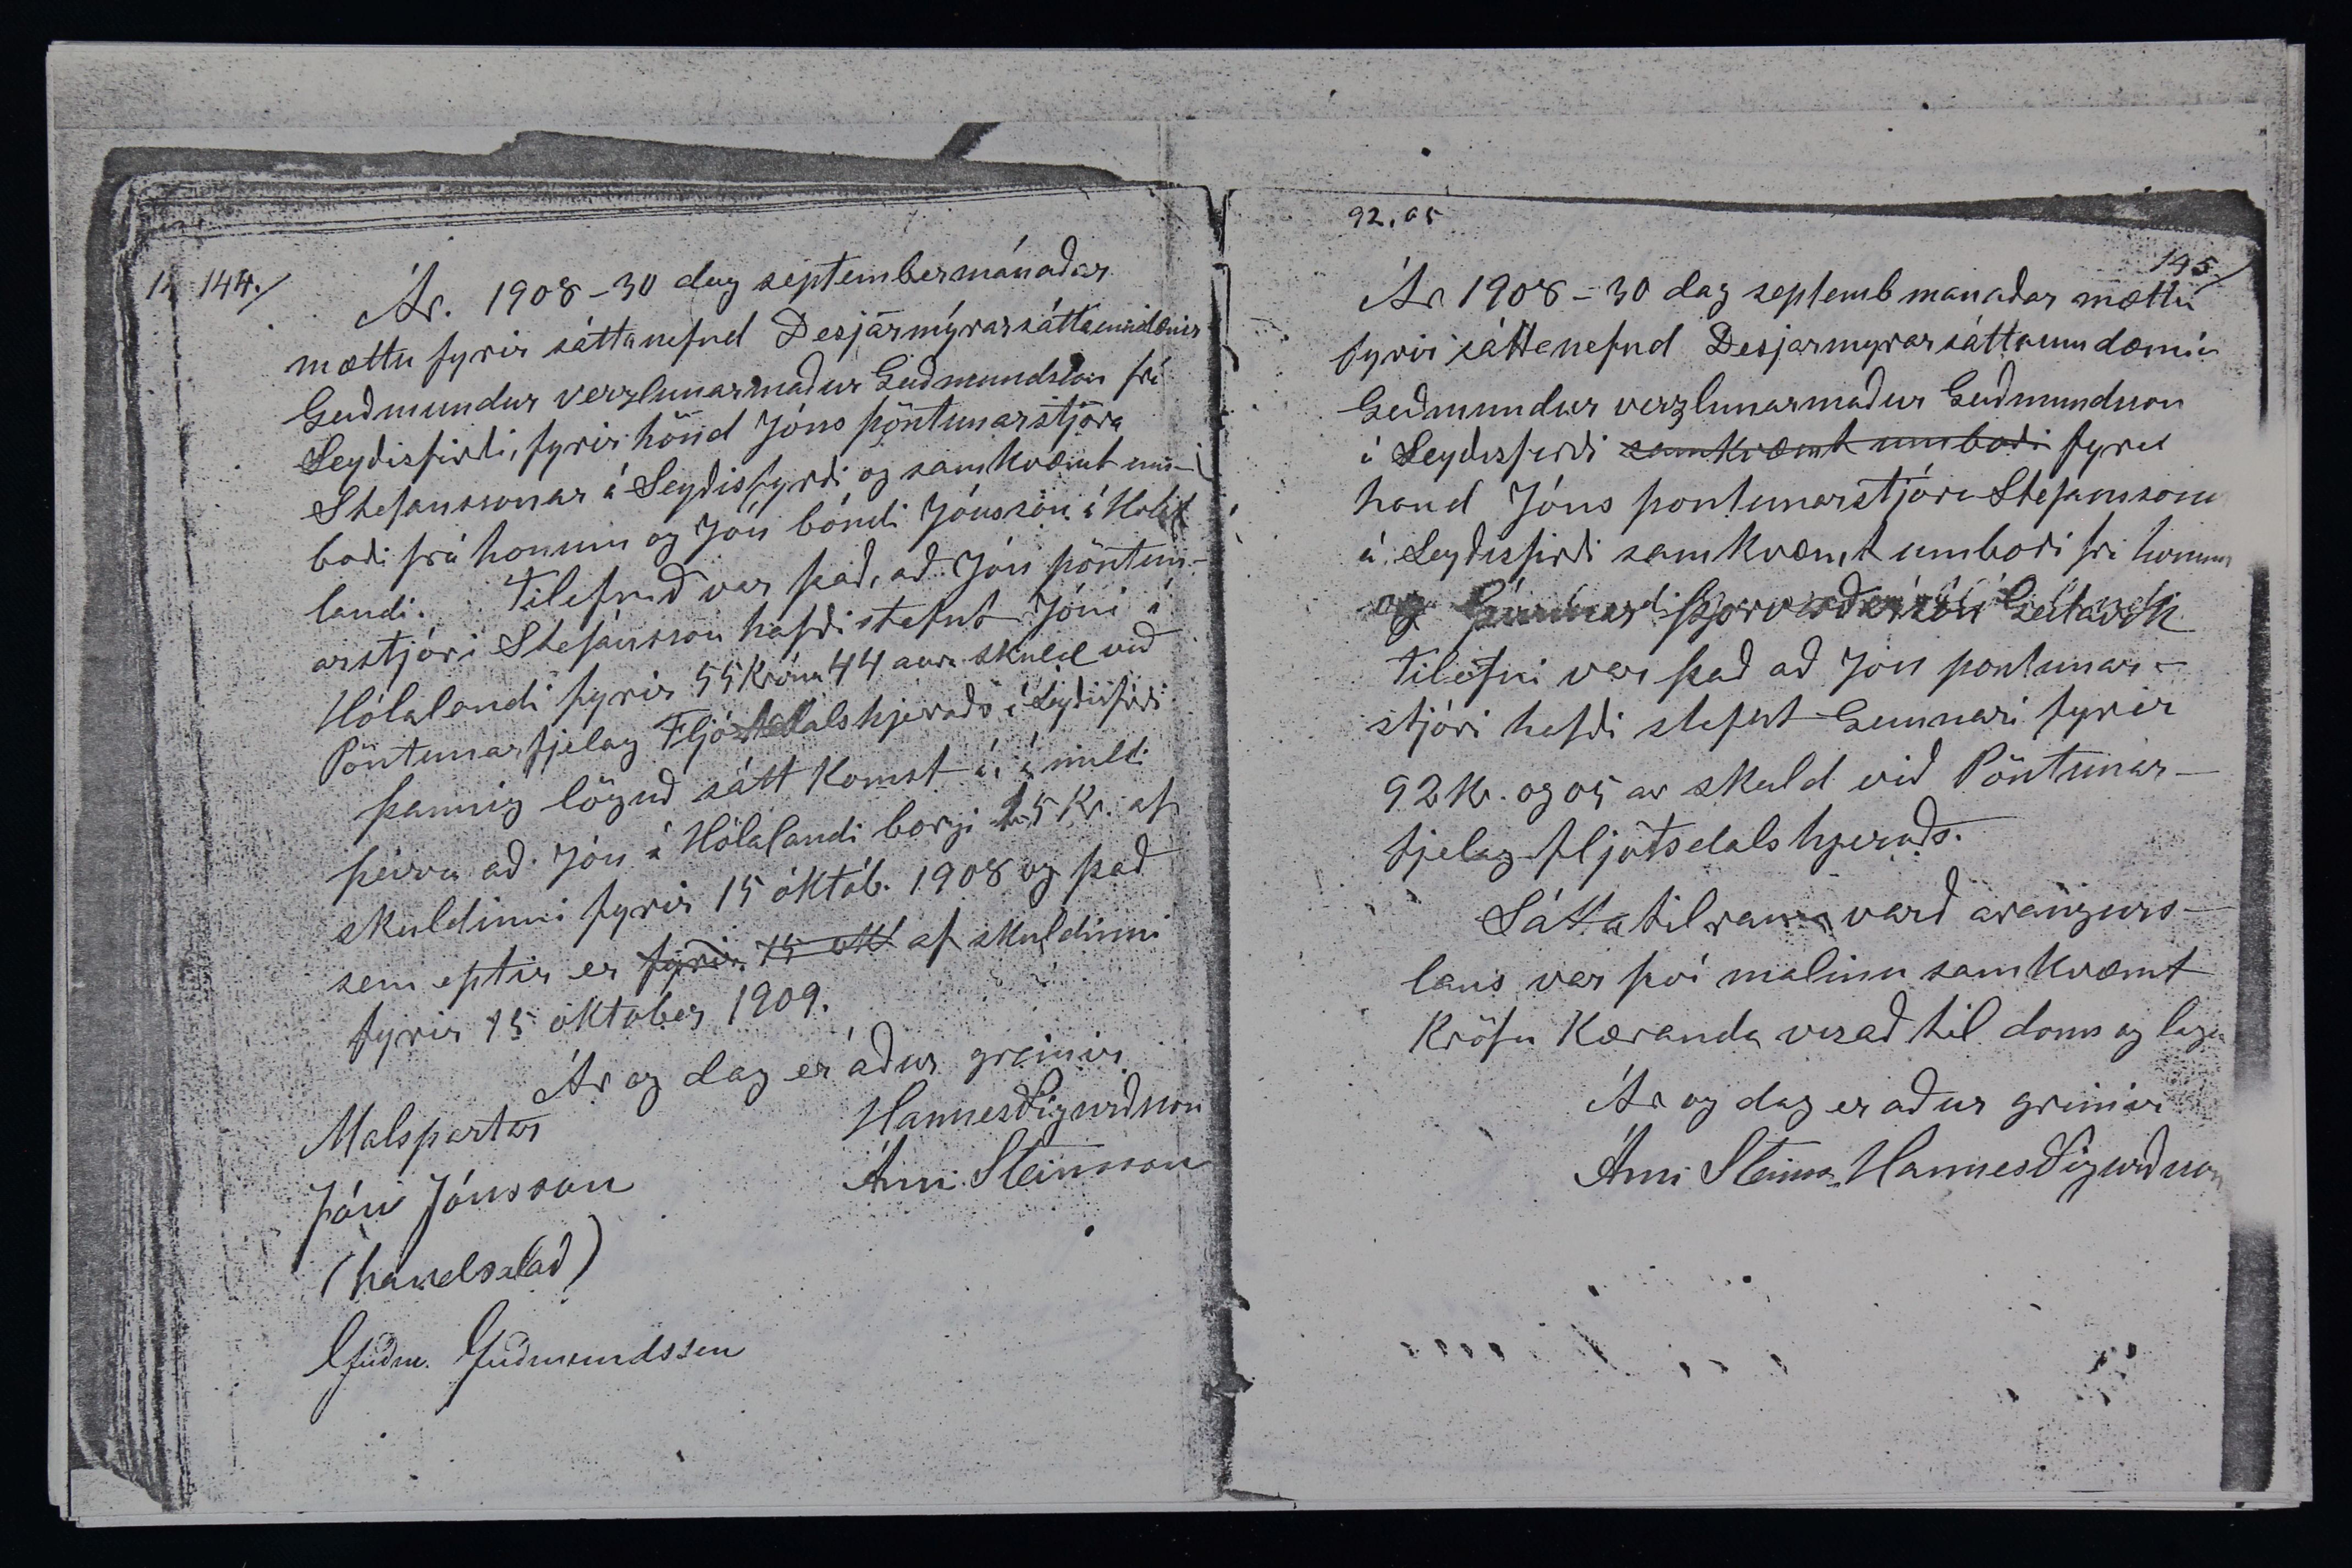 144./
Ár. 1908 – 30 dag septembermánaðar
mættu fyrir sáttanefnd Desjarmýrarsáttaumdæmis
Guðmundur verzlunarmaður Guðmundsson frá
Seyðisfirði, fyrir hönd Jóns pöntunarstjóra
Stefanssonar á Seyðisfyrði og samkvæmt um-
boði frá honum og Jón bóndi Jónsson á Hóla
landi. Tilefnið var það, að Jón pöntun-
arstjóri Stefánsson hafði stefnt Jóni á
Hólalandi fyrir 55 Krónu 44 aura skuld við
Pöntunarfjelag Fljótsdalshjeraðs á Seyðisfirði
þannig löguð sátt Komst á, á milli
þeirra að Jón á Hólalandi borgi 25 Kr. af
skuldinni fyrir 15 októb. 1908 og það
sem eptir er fyrir 15 okt af skuldinni
fyrir 15 oktober 1909.
Ár og dag er áður greinir
Malspartar Hannes Sigurðsson
Jón Jónsson Árni Steinsson
(handsalað)
Guðm. Guðmundssen
92,05
145/
Ár 1908 – 30 dag septemb manaðar mættu
fyrir sáttanefnd Desjarmyrarsáttaumdæmis
Guðmundur verzlunarmaður Guðmundsson
á Seyðisfirði samkvæmt umboði fyrir
hond Jóns pontunarstjóra Stefanssonar
á Seyðisfirði samkvæmt umboði frá honum
og
Tilefni var það að Jón pontunar-
stjóri hafði stefnt Gunnari fyrir
92 kr. og 05 av skuld við Pöntunar-
fjelag fljótsdalshjeraðs.
Sáttatilraun varð arangurs-
laus var því malinu samkvæmt
Kröfu Kæranda visað til doms og laga
Ár og dag er aður greinir
Árni Steinss. Hannes Sigurðsson